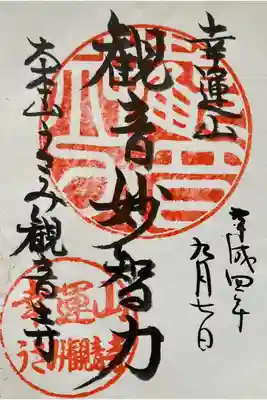 幸運山
観音妙智力
大本山うさみ観音寺
平成四年
九月七日
幸運山
うさみ観音寺